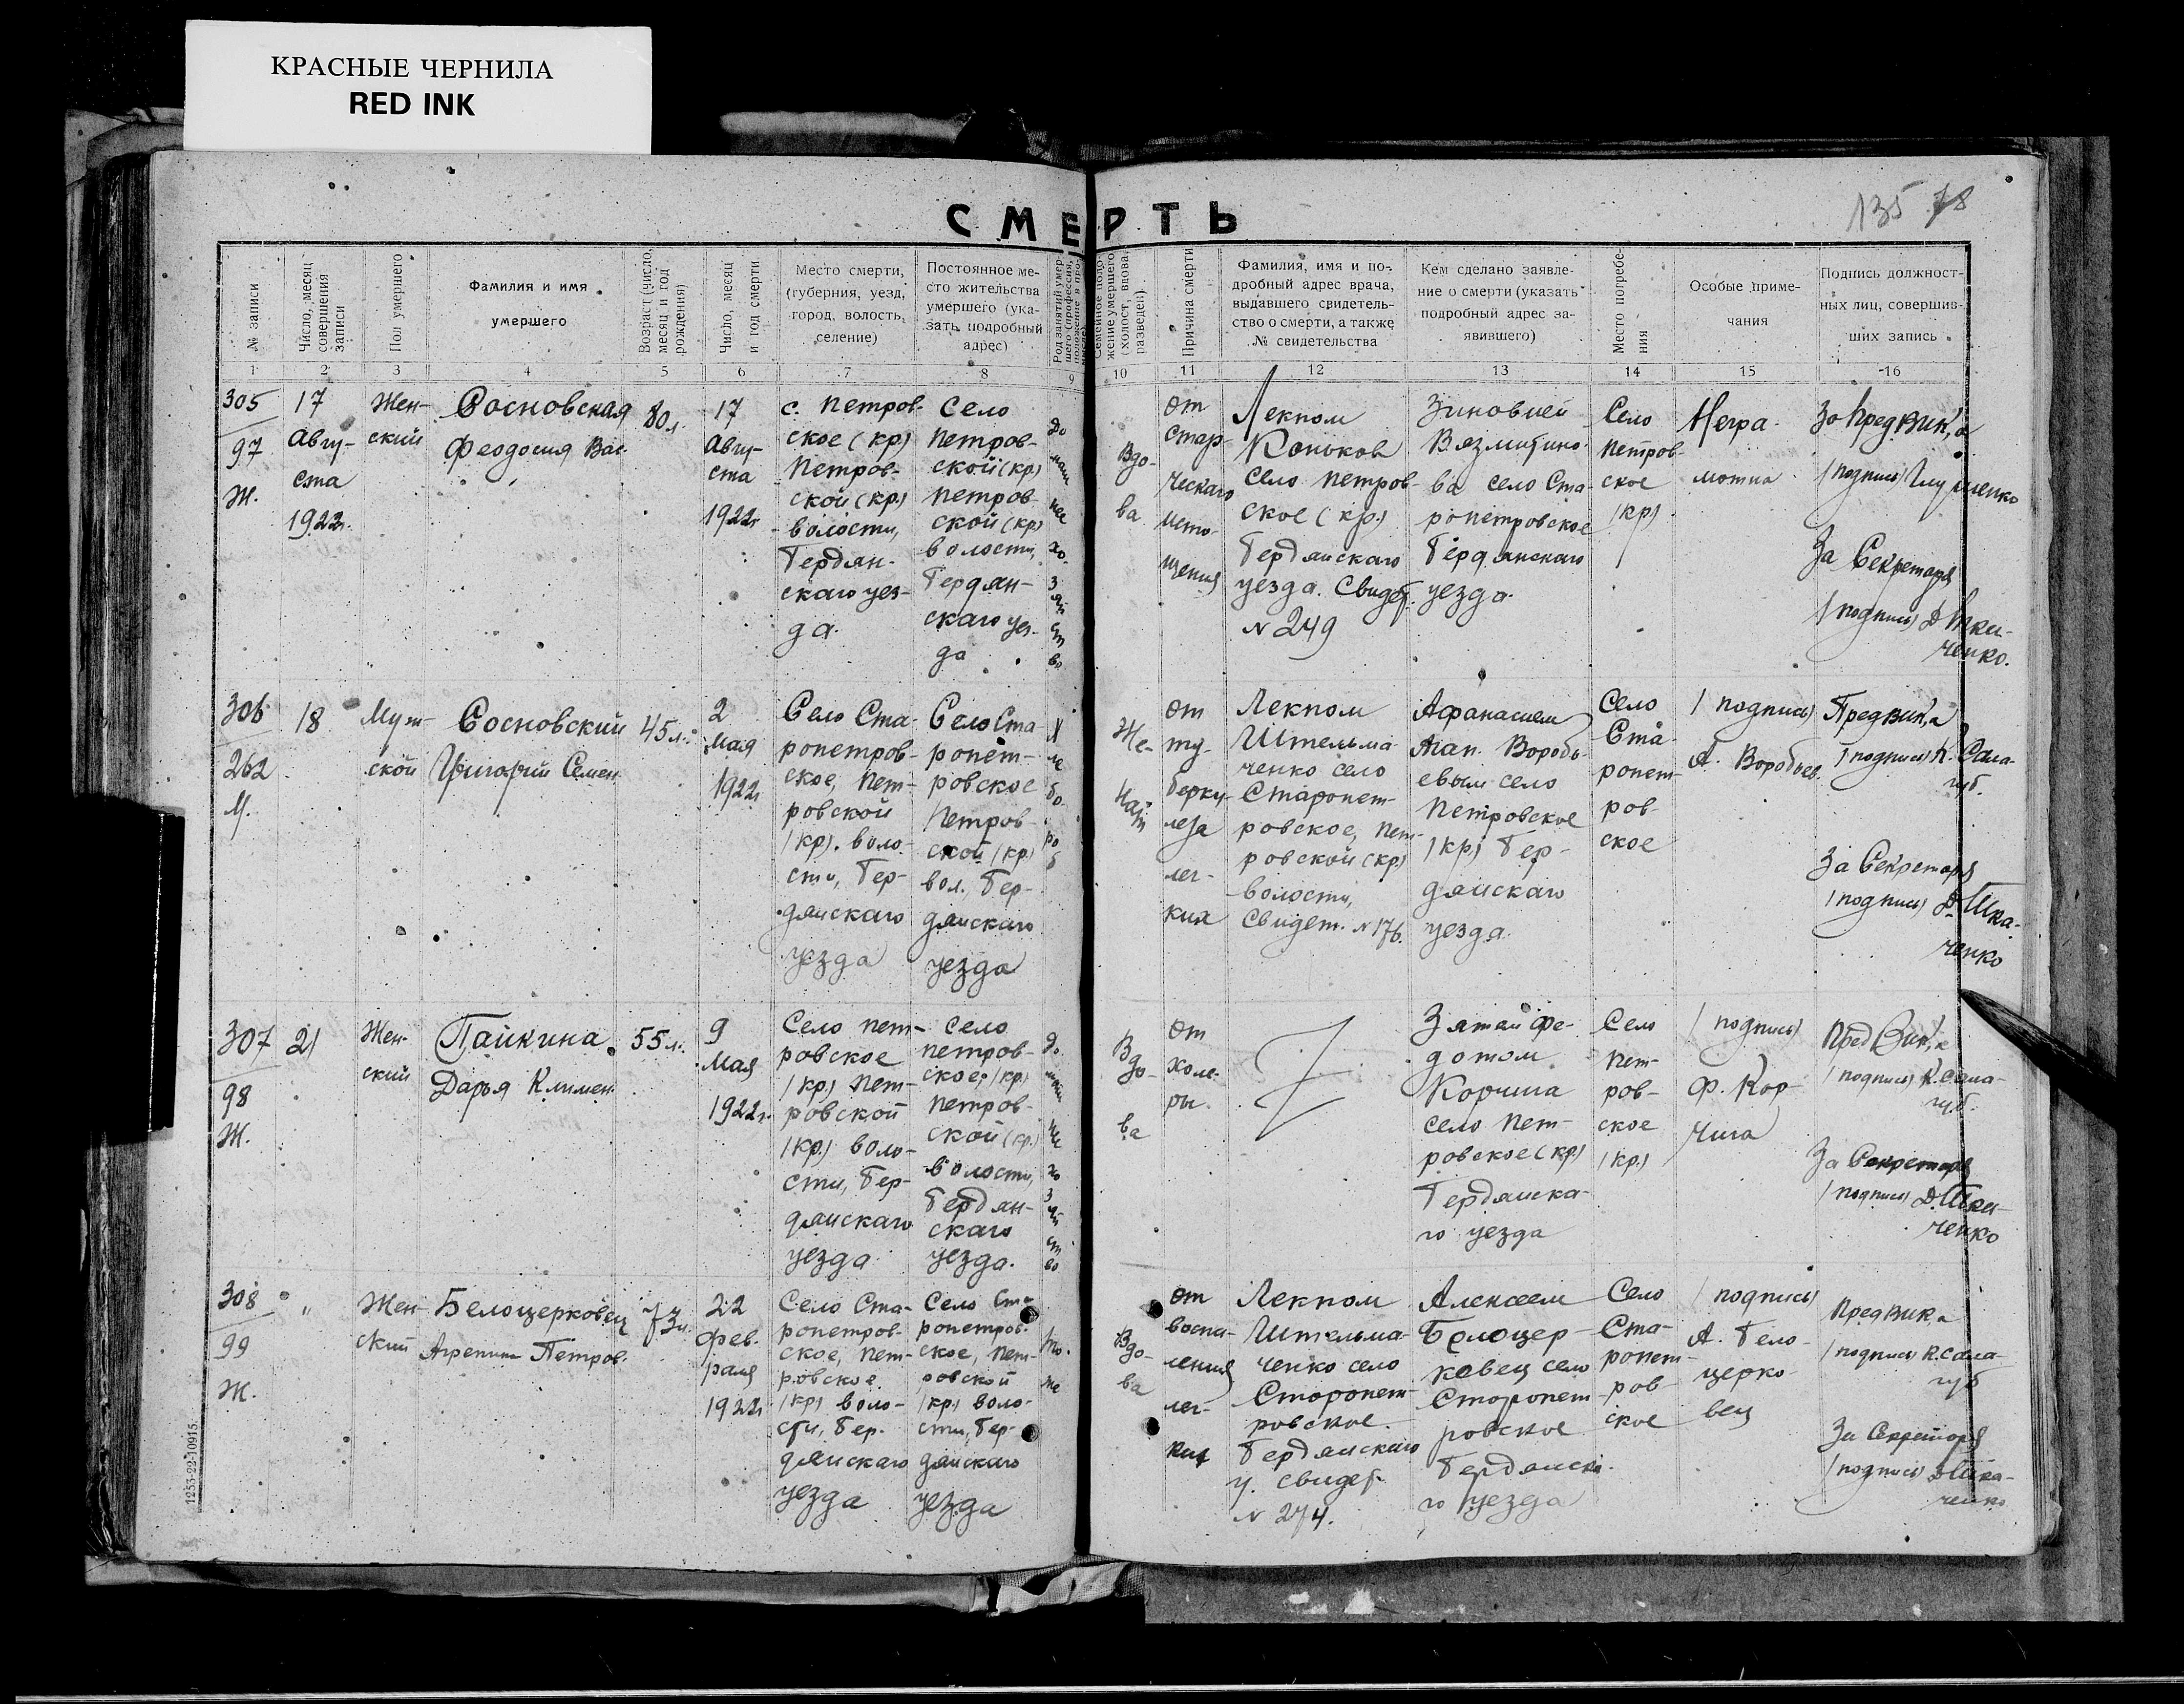 КРАСНЫЕ ЧЕРНИЛА
RED INK
СМЕРТЬ
135 78
№ записи
Число, месяц совершения записи
Пол умершего
Фамилия и имя умершего
Возраст (число, месяц и год рождения)
Число, месяц и год смерти
Место смерти, (губерния, уезд, город, волость, селение)
Постоянное место жительства умершего (указать подробный адрес)
Род занятий умершего (профессия, положение в промысле)
Семейное положение умершего (холост, вдова, разведен)
Причина смерти
Фамилия, имя и подробный адрес врача, выдавшего свидетельство о смерти, а также № свидетельства
Кем сделано заявление о смерти (указать подробный адрес заявившего)
Место погребения
Особые примечания
Подпись должностных лиц, совершивших запись
1 2 3 4 5 6 7 8 9 10 11 12 13 14 15 16
305
97
Ж.
17
Авгу-
ста
1922г.
Жен-
ский
Сосновская
Феодосия Вас.
80 л.
17
Авгу-
ста
1922г
с. Петров-
ское (кр)
Петров-
ской (кр.)
волости,
Бердян-
скаго уез-
да.
Село
Петров-
ской (кр)
Петров-
ской (кр)
волости,
Бердян-
скаго уез-
да
Вдо-
ва
от
стар-
ческаго
исто-
щения
Лекпом
Коньков
Село Петров-
ское (кр.)
Бердянскаго
уезда. Свидет.
№ 249
Зиновией
Вязмитино-
ва село Ста-
ропетровское
Бердянскаго
уезда.
Село
Петров-
ское
(кр)
Негра-
мотна
За Предвик'а
(подпись)
За Секретаря
(подпись) Д Тка-
ченко.
306
262
М.
18
Муж-
ской
Сосновский
Григорий Семен
45 л.
2
мая
1922г
Село Ста-
ропетров-
ское, Пет-
ровской
(кр). воло-
сти, Бер-
дянскаго
уезда
Село Ста-
ропет-
ровское
Петров-
ской (кр)
вол. Бер-
дянскаго
уезда
Х
ле
бо-
ро
б
Же-
нат
от
ту-
берку-
леза
лег-
ких
Лекпом
Штельма-
ченко село
Старопет-
ровское, Пет-
ровской (кр)
волости,
Свидет. № 176.
Афанасием
Агап. Воробь-
евым село
Петровское
(кр) Бер-
дянскаго
уезда
Село
Ста-
ропет-
ров-
ское
(подпись)
А. Воробьев.
Предвик'а
(подпись) К. Сала-
губ.
За Секретаря
(подпись) Д. Тка-
ченко
307
98
Ж.
21
Жен-
ский
Пайкина
Дарья Климен
55 л.
9
мая
1922г.
Село Пет-
ровское
(кр) Пет-
ровской
(кр.) воло-
сти, Бер-
дянскаго
уезда
Село
Петров-
ское, (кр)
Петров-
ской (кр.)
волости,
Бердян-
скаго
уезда.
Вдо-
ва
от
холе-
ры.
Зятем Фе-
дотом
село Пет-
ровское (кр)
Бердянска-
го уезда
Село
Пет-
ров-
ское
(кр.)
(подпись)
Ф. Кор-
чига
Пред Вик'а
(подпись) К. Сала-
губ.
За Секретаря
(подпись) Д. Тка-
ченко
308
99
Ж.
"
Жен-
ский
Белоцерковец
Агрепина Петров.
73 л.
22
фев-
раля
1922г
Село Ста-
ропетров-
ское, Пет-
ровское
(кр) воло-
сти, Бер-
дянскаго
уезда
Село Ста-
ропетров-
ское, Пет-
ровской
(кр.) воло-
сти, Бер-
дянскаго
уезда
то-
же
Вдо-
ва
от
воспа-
ления
лег-
ких
Лекпом
Штельма-
ченко село
Старопет-
ровское.
Бердянскаго
у. свидет.
№ 274.
Алексеем
Белоцер-
ковец село
Старопет-
ровское
Бердянска-
го уезда
Село
Ста-
ропет-
ров-
ское
(подпись)
А. Бело-
церко-
вец
Предвика
(подпись) К. Сала-
губ
За Секретаря
(подпись) Д Тка-
ченко
1253-22-10915.